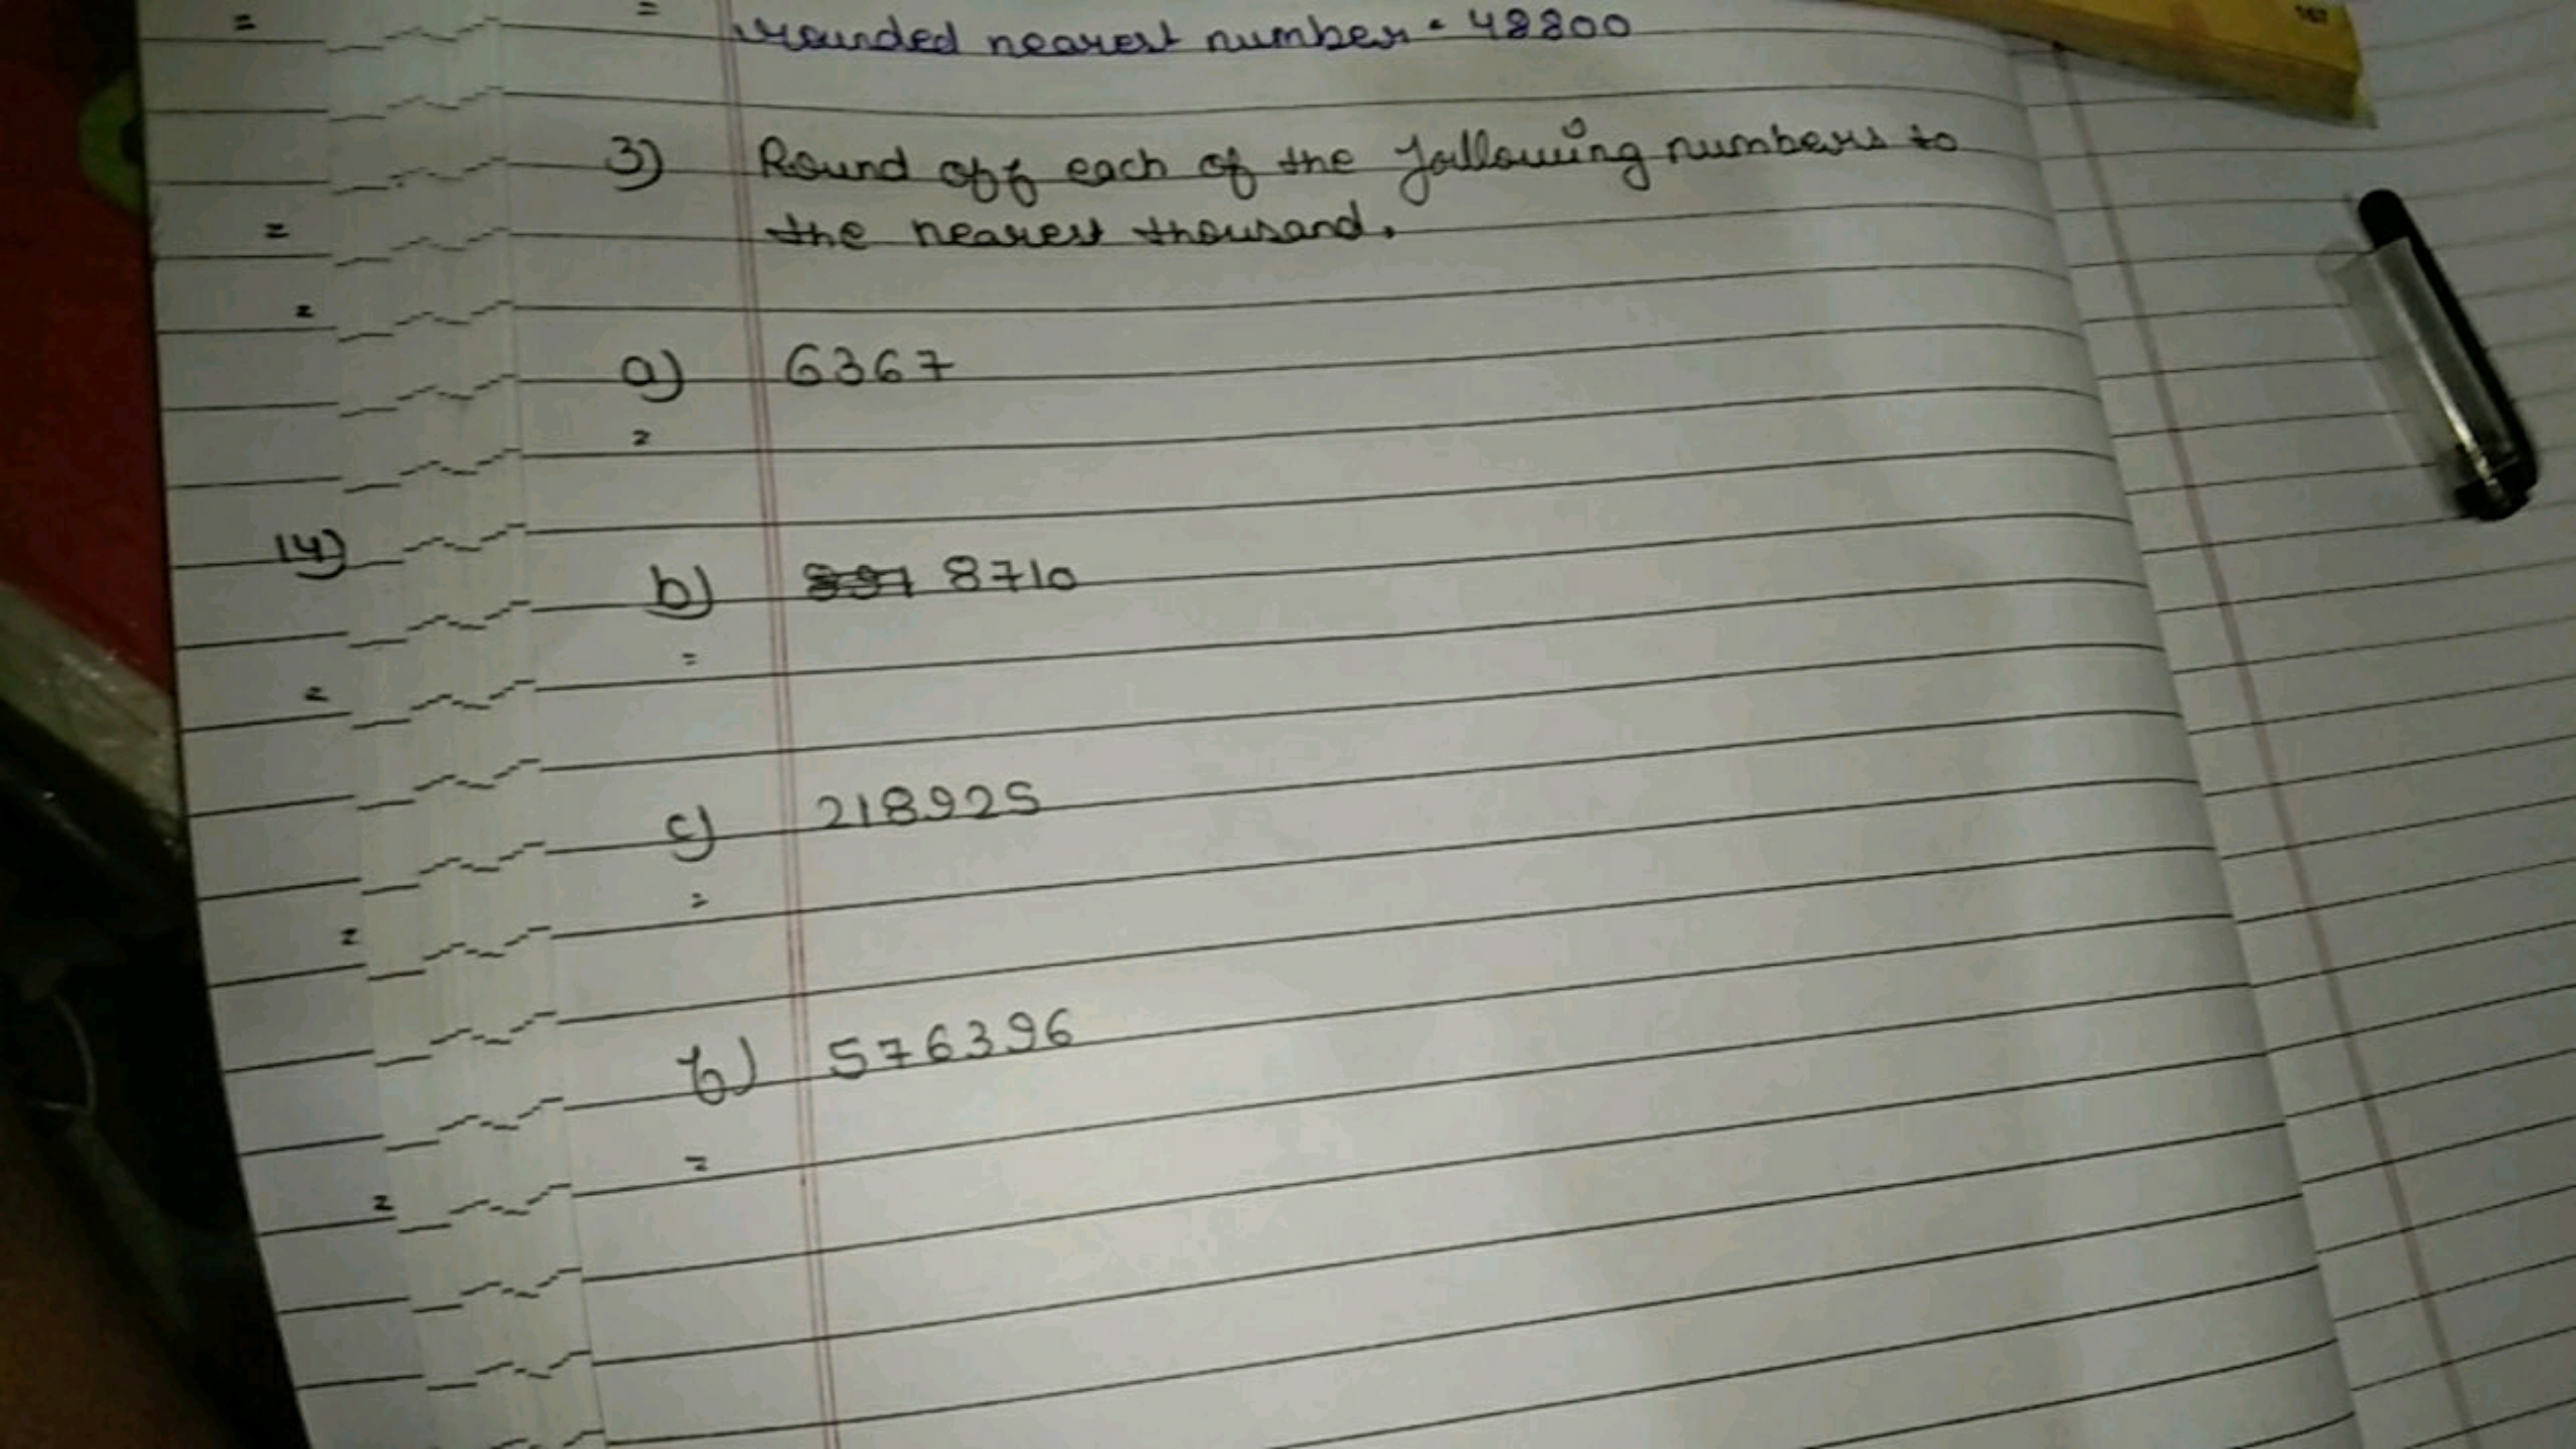 =
=
rounded nearest number = 48800
3) Round off each of the following numbers to
the nearest thousand.
=
=
a) 6367
=
14)
b) 8710
=
=
c) 218925
=
=
576396
=
=